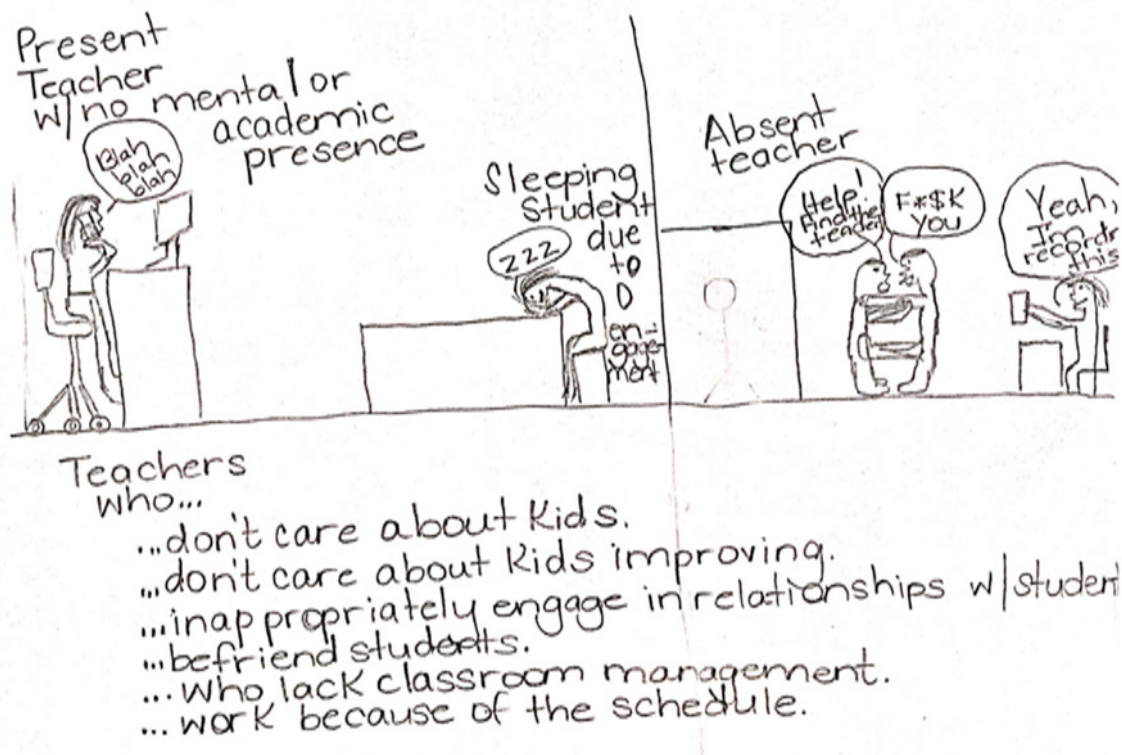 Present
Teacher
w/no mental or
academic
presence
Blah
blah
blah
Sleeping
Student
due
to
0
en-
gage-
ment
zzz
Absent
teacher
Help!
Find the
teacher
F*$K
YOU
Yeah,
I'm
recordi
this
Teachers
who...
...don't care about kids.
...don't care about kids improving.
...inappropriately engage in relationships w/student
...befriend students.
...who lack classroom management.
...work because of the schedule.